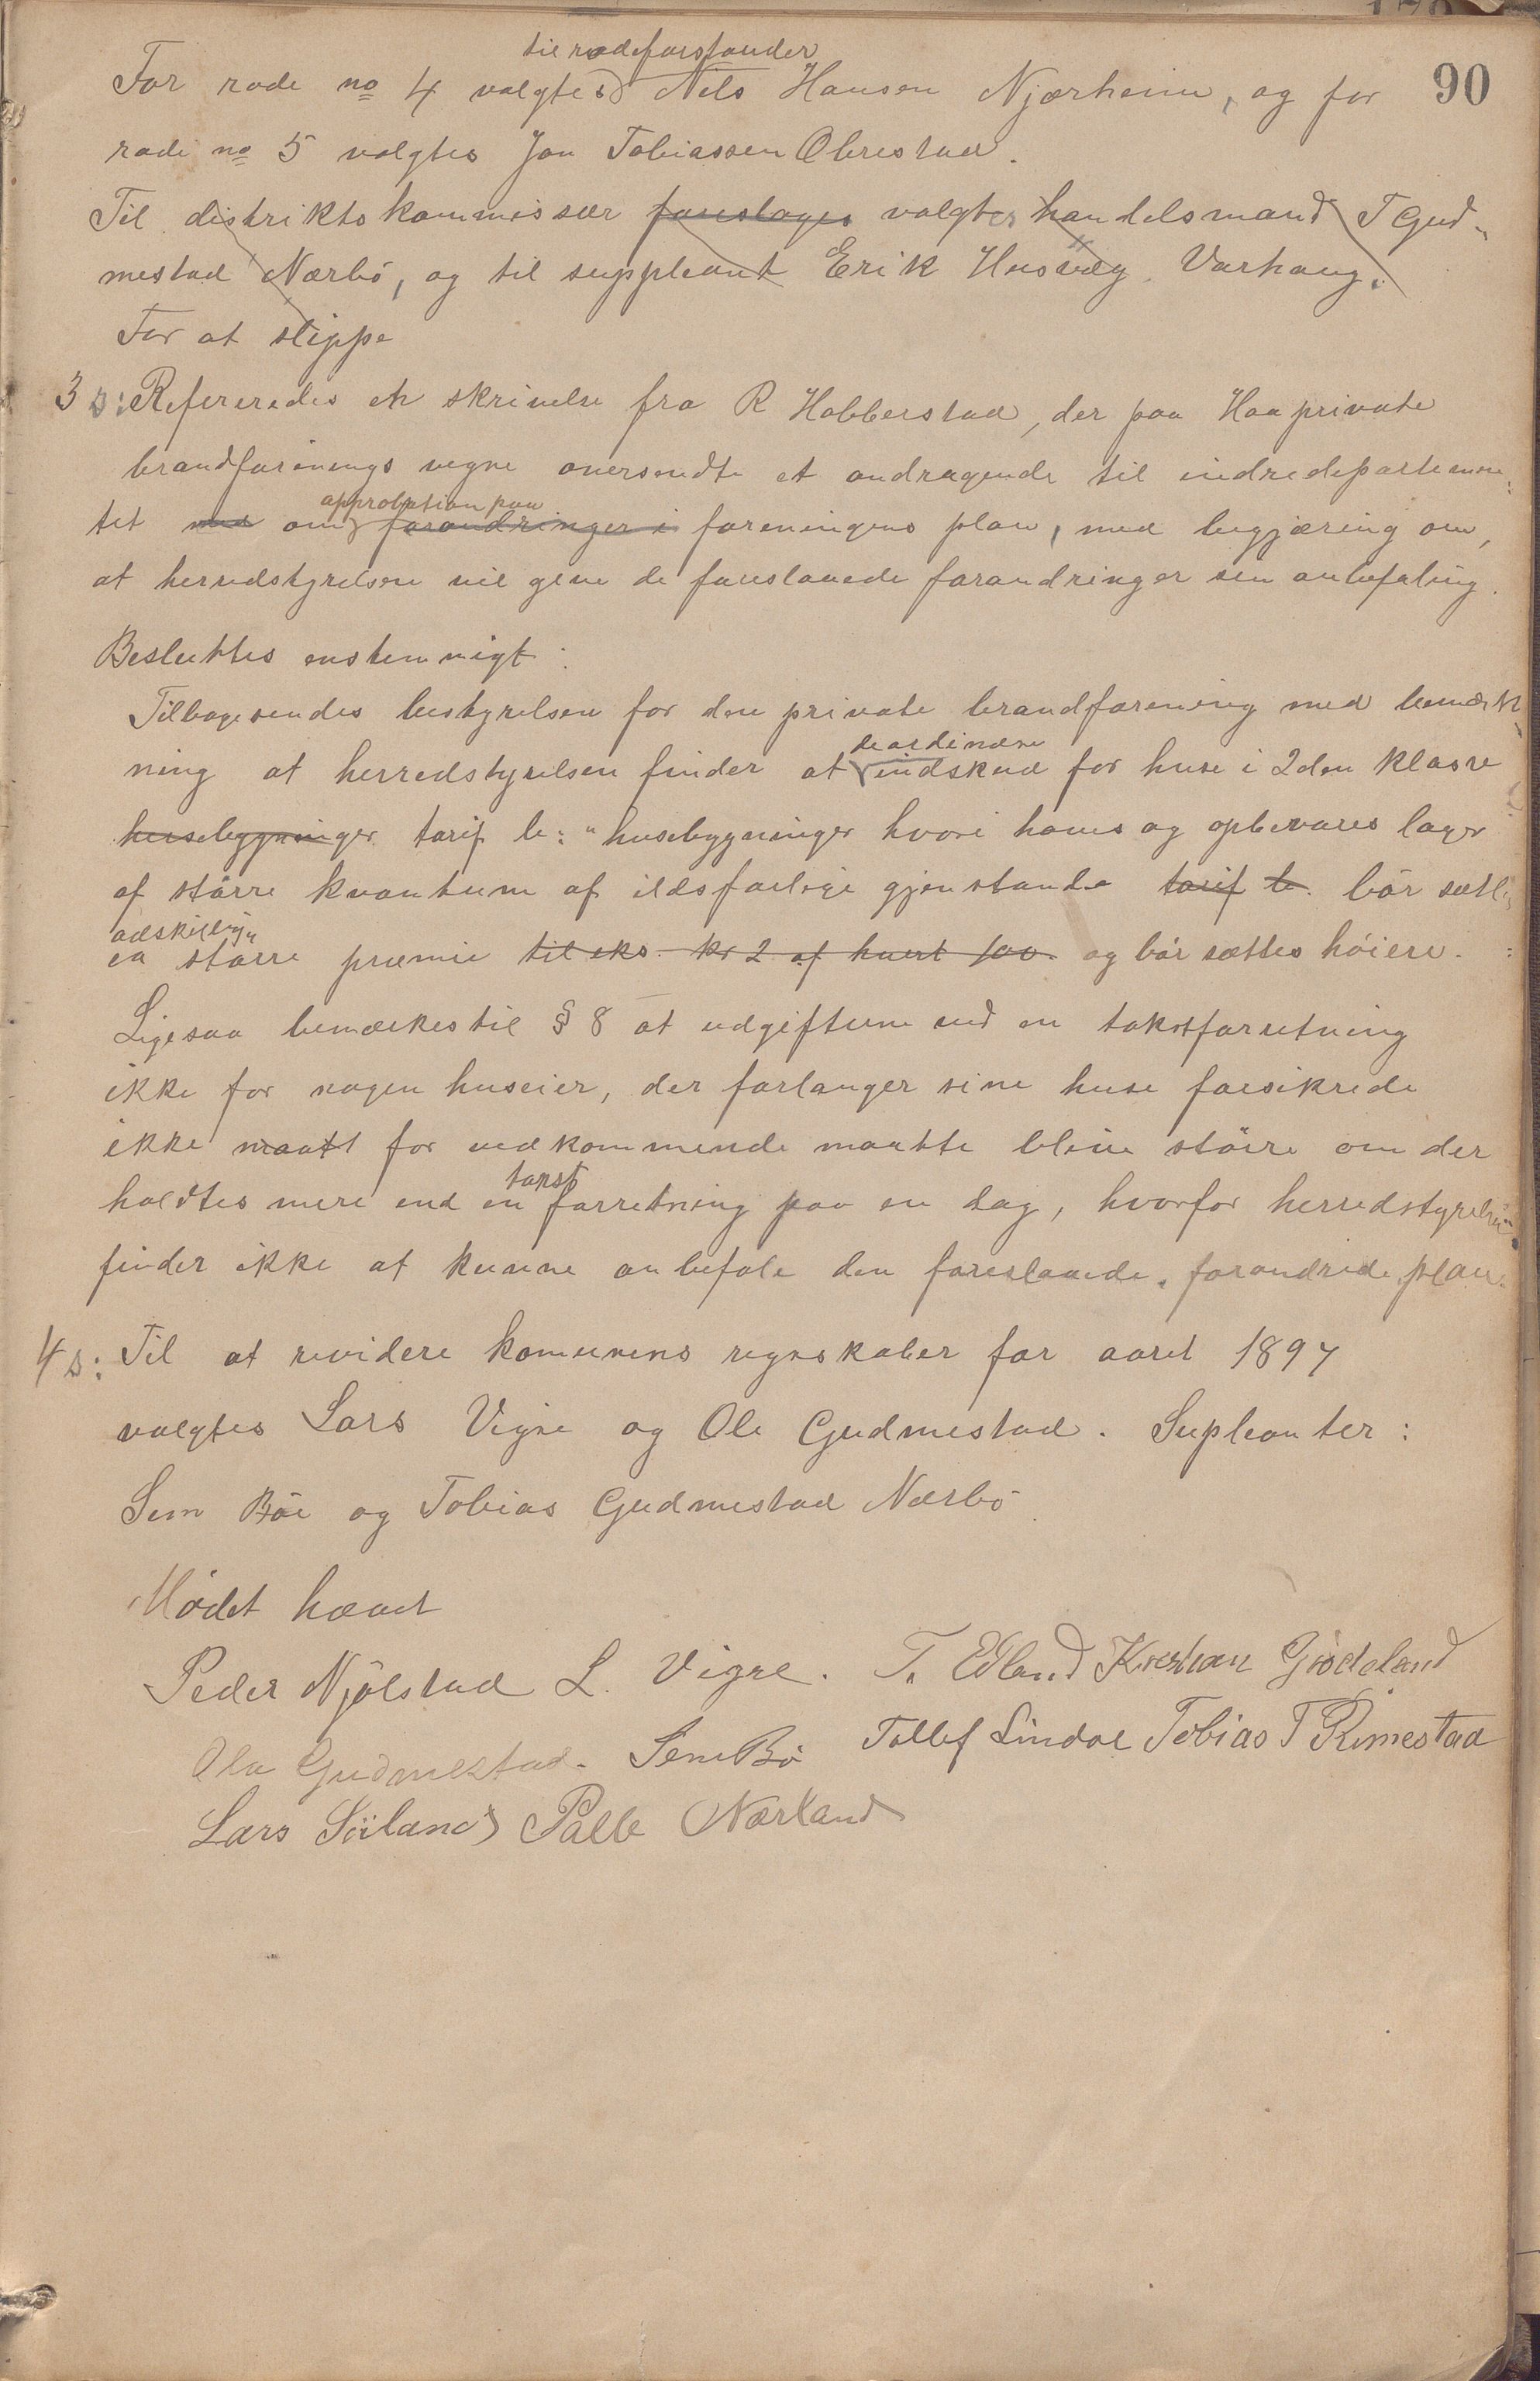 90
til rodeforstander
For rode no 4 valgtes Nils Hansen Njærheim, og for
rode no 5 valgtes Jon Tobiassen Obrestad.
Til distriktskommissær foreslages valgtes handelsmand T Gud-
mestad Nærbö, og til suppleant Erik Husvæg. Varhaug.
For at slippe
3 s: Refereredes en skrivelse fra R Hobberstad, der paa Haa private
brandforenings vegne oversendte et andragende til indredepartemen:
approbation paa
tet med om forandringer i foreningens plan, med begjæring om,
at herredstyrelsen vil give de foreslaaede forandringer sin anbefaling.
Besluttes enstemmigt:
Tilbagesendes bestyrelsen for den private brandforening med bemærk
de ordinære
ning at herredstyrelsen finder at indskud for huse i 2den klasse
husebygninger tarif b: "husebygninger hvori haves og opbevares lager
af större kvantum af ildsfarlige gjenstande tarif b. bör sættes
adskillig
en större præmie til eks. kr 2 af hvert 100. og bör sættes höiere.
Ligesaa bemærkes til § 8 at udgifterne ved en takstforretning
ikke for nogen huseier, der forlanger sine huse forsikrede
ikke maatt for vedkommende maatte blive större om der
takst
holdtes mere end en forretning paa en dag, hvorfor herredstyrelsen
finder ikke at kunne anbefale den foreslaaede, forandrede plan.
4 s: Til at revidere komunens regnskaber for aaret 1897
valgtes Lars Vigre og Ole Gudmestad. Supleanter:
Sem Böe og Tobias Gudmestad Nærbö
Mödet hævet
Peder Njölstad L. Vigre. T. Edland Kristian Grödeland
Ola Gudmestad. Sem Bö Tollef Lindal Tobias T Rimestad
Lars Söiland Palle Nærland